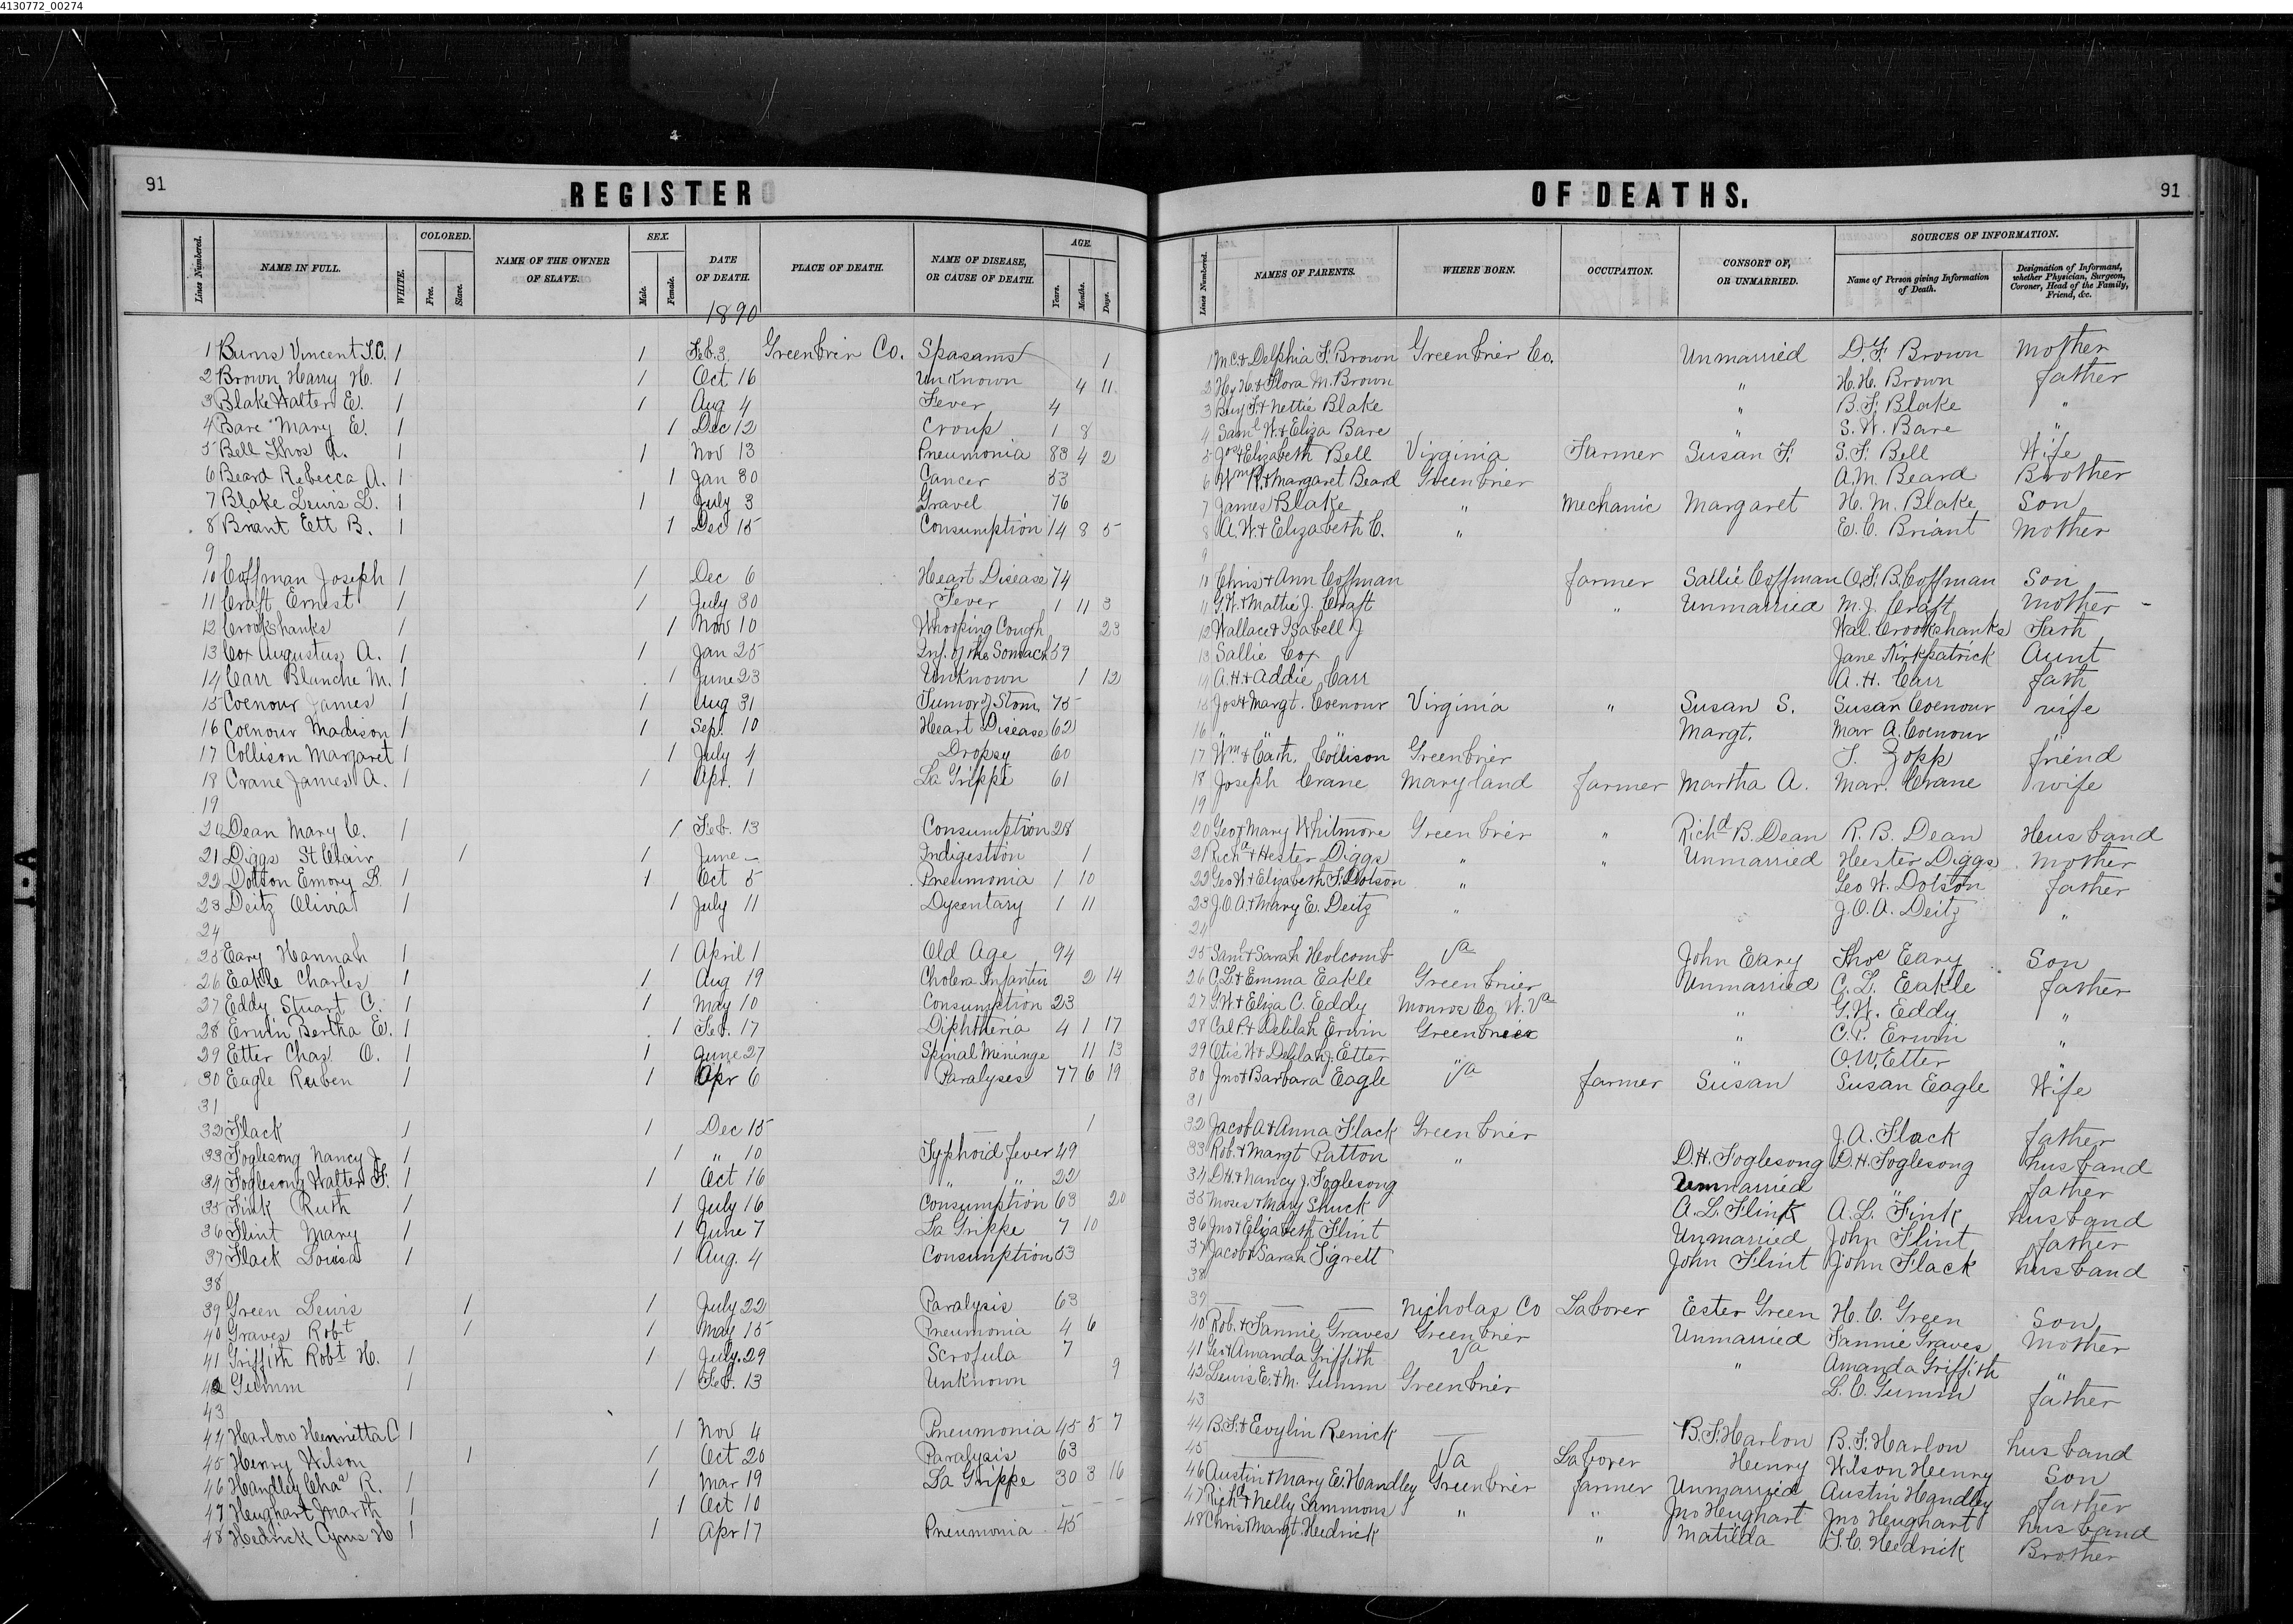 4130772_00274
91
REGISTER
LINES NUMBERED. NAME IN FULL. WHITE. COLORED. Free. Slave. NAME OF THE OWNER OF SLAVE. SEX. Male. Female. DATE OF DEATH. PLACE OF DEATH. NAME OF DISEASE, OR CAUSE OF DEATH. AGE. Years. Months. Days.
1890
1 Burns Vincent 1 1 Feb. 3 Greenbrier Co. Spasams 1
2 Brown Harry H. 1 1 Oct 16 Unknown 4 11
3 Blake Walter E. 1 1 Aug 4 Fever 4
4 Bare Mary E. 1 1 Dec 12 Croup 1 8
5 Bell Thos A. 1 1 Nov 13 Pneumonia 83 4 2
6 Beard Rebecca A. 1 1 Jan 30 Cancer 53
7 Blake Lewis L. 1 1 July 3 Gravel 76
8 Briant Ett B. 1 1 Dec 15 Consumption 14 8 5
9
10 Coffman Joseph 1 1 Dec 6 Heart Disease 74
11 Craft Ernest 1 1 July 30 Fever 1 11 3
12 Crookshanks 1 1 Nov 10 Whooping Cough 23
13 Cox Augustus A. 1 1 Jan 25 Inf. of the Somach 59
14 Carr Blanche M. 1 1 June 23 Unknown 1 12
15 Coenour James 1 1 Aug 31 Tumor of Stom. 75
16 Coenour Madison 1 1 Sept. 10 Heart Disease 62
17 Collison Margaret 1 1 July 4 Dropsy 60
18 Crane James A. 1 1 Apr. 1 La Grippe 61
19
20 Dean Mary C. 1 1 Feb. 13 Consumption 28
21 Diggs St Clair 1 1 June — Indigestion 1
22 Dotson Emory B. 1 1 Oct 5 Pneumonia 1 10
23 Deitz Olivia 1 1 July 11 Dysentary 1 11
24
25 Eary Hannah 1 1 April 1 Old Age 94
26 Eakle Charles 1 1 Aug 19 Cholera Infantin 2 14
27 Eddy Stuart C. 1 1 May 10 Consumption 23
28 Erwin Bertha E. 1 1 Feb. 17 Diphtheria 4 1 17
29 Etter Chas. O. 1 1 June 27 Spinal Mininge 11 13
30 Eagle Ruben 1 1 Apr 6 Paralyses 77 6 19
31
32 Flack 1 1 Dec 15 1
33 Foglesong Nancy J. 1 1 " 10 Typhoid fever 49
34 Foglesong Walter F. 1 1 Oct 16 " " 22
35 Fink Ruth 1 1 July 16 Consumption 63 20
36 Flint Mary 1 1 June 7 La Grippe 7 10
37 Flack Louisa 1 1 Aug. 4 Consumption 53
38
39 Green Lewis 1 1 July 22 Paralysis 63
40 Graves Robt 1 1 May 15 Pneumonia 4 6
41 Griffith Robt H. 1 1 July 29 Scrofula 7
42 Gumm 1 1 Feb. 13 Unknown 9
43
44 Harlow Henrietta C 1 1 Nov 4 Pneumonia 45 5 7
45 Henry Wilson 1 1 Oct 20 Paralysis 63
46 Handley Chas R. 1 1 Mar 19 La Grippe 30 3 16
47 Heughart Marth 1 1 Oct 10
48 Hedrick Cyrus H 1 1 Apr 17 Pneumonia 45
OF DEATHS.
91
Lines Numbered. NAMES OF PARENTS. WHERE BORN. OCCUPATION. CONSORT OF, OR UNMARRIED. SOURCES OF INFORMATION. Name of Person giving Information of Death. Designation of Informant, whether Physician, Surgeon, Coroner, Head of the Family, Friend, &c.
1 M C. & Delphia F. Brown Greenbrier Co. Unmarried D. F. Brown Mother
2 Hy H. & Flora M. Brown " H. H. Brown father
3 Benj F. & Nettie Blake " B. F. Blake "
4 Saml W. & Eliza Bare " S. W. Bare "
5 Jos & Elizabeth Bell Virginia Farmer Susan F. S. F. Bell Wife
6 Wm R. & Margaret Beard Greenbrier A. M. Beard Brother
7 James Blake " Mechanic Margaret H. M. Blake Son
8 A. W. & Elizabeth C. " E. C. Briant Mother
9
10 Chris & Ann Coffman farmer Sallie Coffman B. Coffman Son
11 G. W. & Mattie J. Craft " Unmarried M. J. Craft Mother
12 Wallace & Isabell J Wal. Crookshanks Fath
13 Sallie Cox Jane Kirkpatrick Aunt
14 A. H. & Addie Carr A. H. Carr fath
15 Jos & Margt. Coenour Virginia " Susan S. Susan Coenour wife
16 " " Margt. Mar A. Coenour "
17 Wm & Cath. Collison Greenbrier Zopp friend
18 Joseph Crane Maryland farmer Martha A. Mar. Crane wife
19
20 Geo & Mary Whitmore Greenbrier " Richd B. Dean R. B. Dean Husband
21 Richd & Hester Diggs " " Unmarried Hester Diggs Mother
22 Geo W & Elizabeth F. Dotson " Geo W. Dotson father
23 J. O. A. & Mary E. Deitz " J. O. A. Deitz "
24
25 Sam & Sarah Holcomb Va John Eary Thos Eary Son
26 C. L. & Emma Eakle Greenbrier Unmarried C. L. Eakle father
27 G. W. & Eliza C. Eddy Monroe Co. W. Va " G. W. Eddy "
28 Cal P. & Delilah Erwin Greenbrier " C. P. Erwin "
29 Otis W & Delilah J. Etter " " O. W. Etter "
30 Jno & Barbara Eagle Va farmer Susan Susan Eagle Wife
31
32 Jacob A & Anna Flack Greenbrier J. A. Flack father
33 Rob. & Margt Patton " D. H. Foglesong D. H. Foglesong husband
34 D H. & Nancy J. Foglesong Unmarried " father
35 Moses & Mary Shuck A. L. Flink A. L. Fink husband
36 Jno & Elizabeth Flint Unmarried John Flint father
37 Jacob & Sarah Sigrett John Flint John Flack husband
38
39 — — Nicholas Co Laborer Ester Green H. C. Green Son
40 Rob. & Fannie Graves Greenbrier Unmarried Fannie Graves Mother
41 Geo & Amanda Griffith Va " Amanda Griffith "
42 Lewis E. & M. Gumm Greenbrier L. C. Gumm father
43
44 B. F. & Evylin Renick — B. F. Harlow B. F. Harlow husband
45 — Va Laborer Henry Wilson Henry Son
46 Austin & Mary E. Handley Greenbrier farmer Unmarried Austin Handley father
47 Richd & Nelly Sammons " " Jno Heughart Jno Heughart husband
48 Chris & Margt. Hedrick " Matilda Hedrick Brother